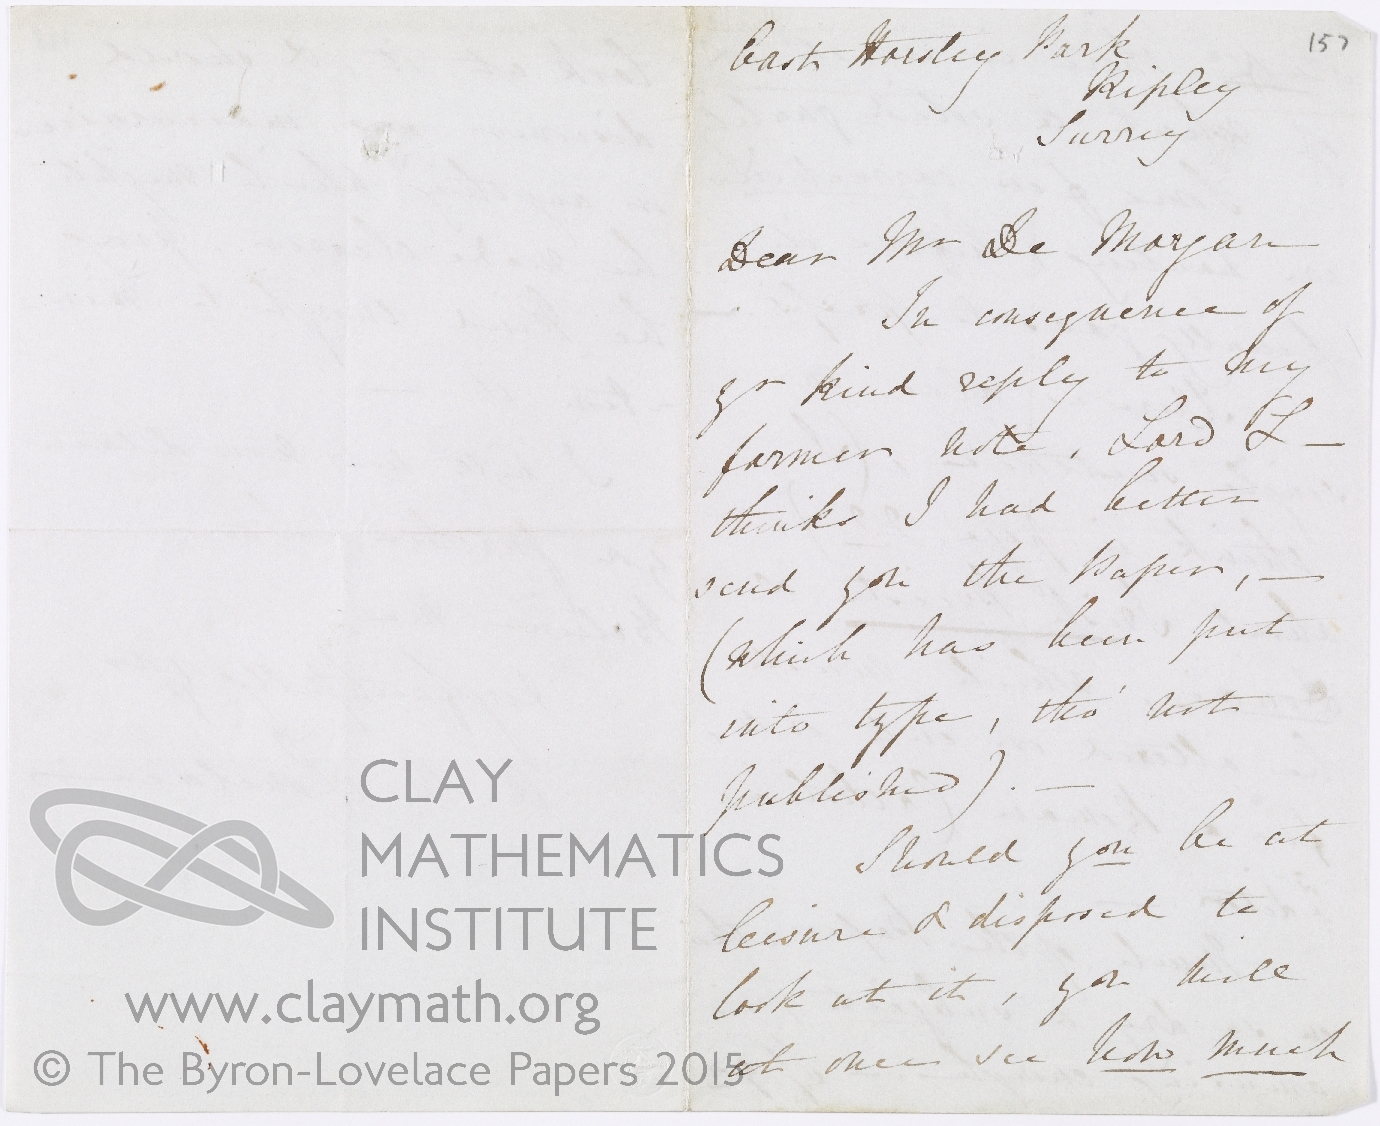 157
East Horsley Park
Ripley
Surrey
Dear Mr De Morgan
In consequence of
yr kind reply to my
former note, Lord L—
thinks I had better
send you the Paper, —
(which has been put
into type, tho' not
published). —
Should you be at
leisure & disposed to
look at it, you will
at once see how much
CLAY
MATHEMATICS
INSTITUTE
www.claymath.org
© The Byron-Lovelace Papers 2015